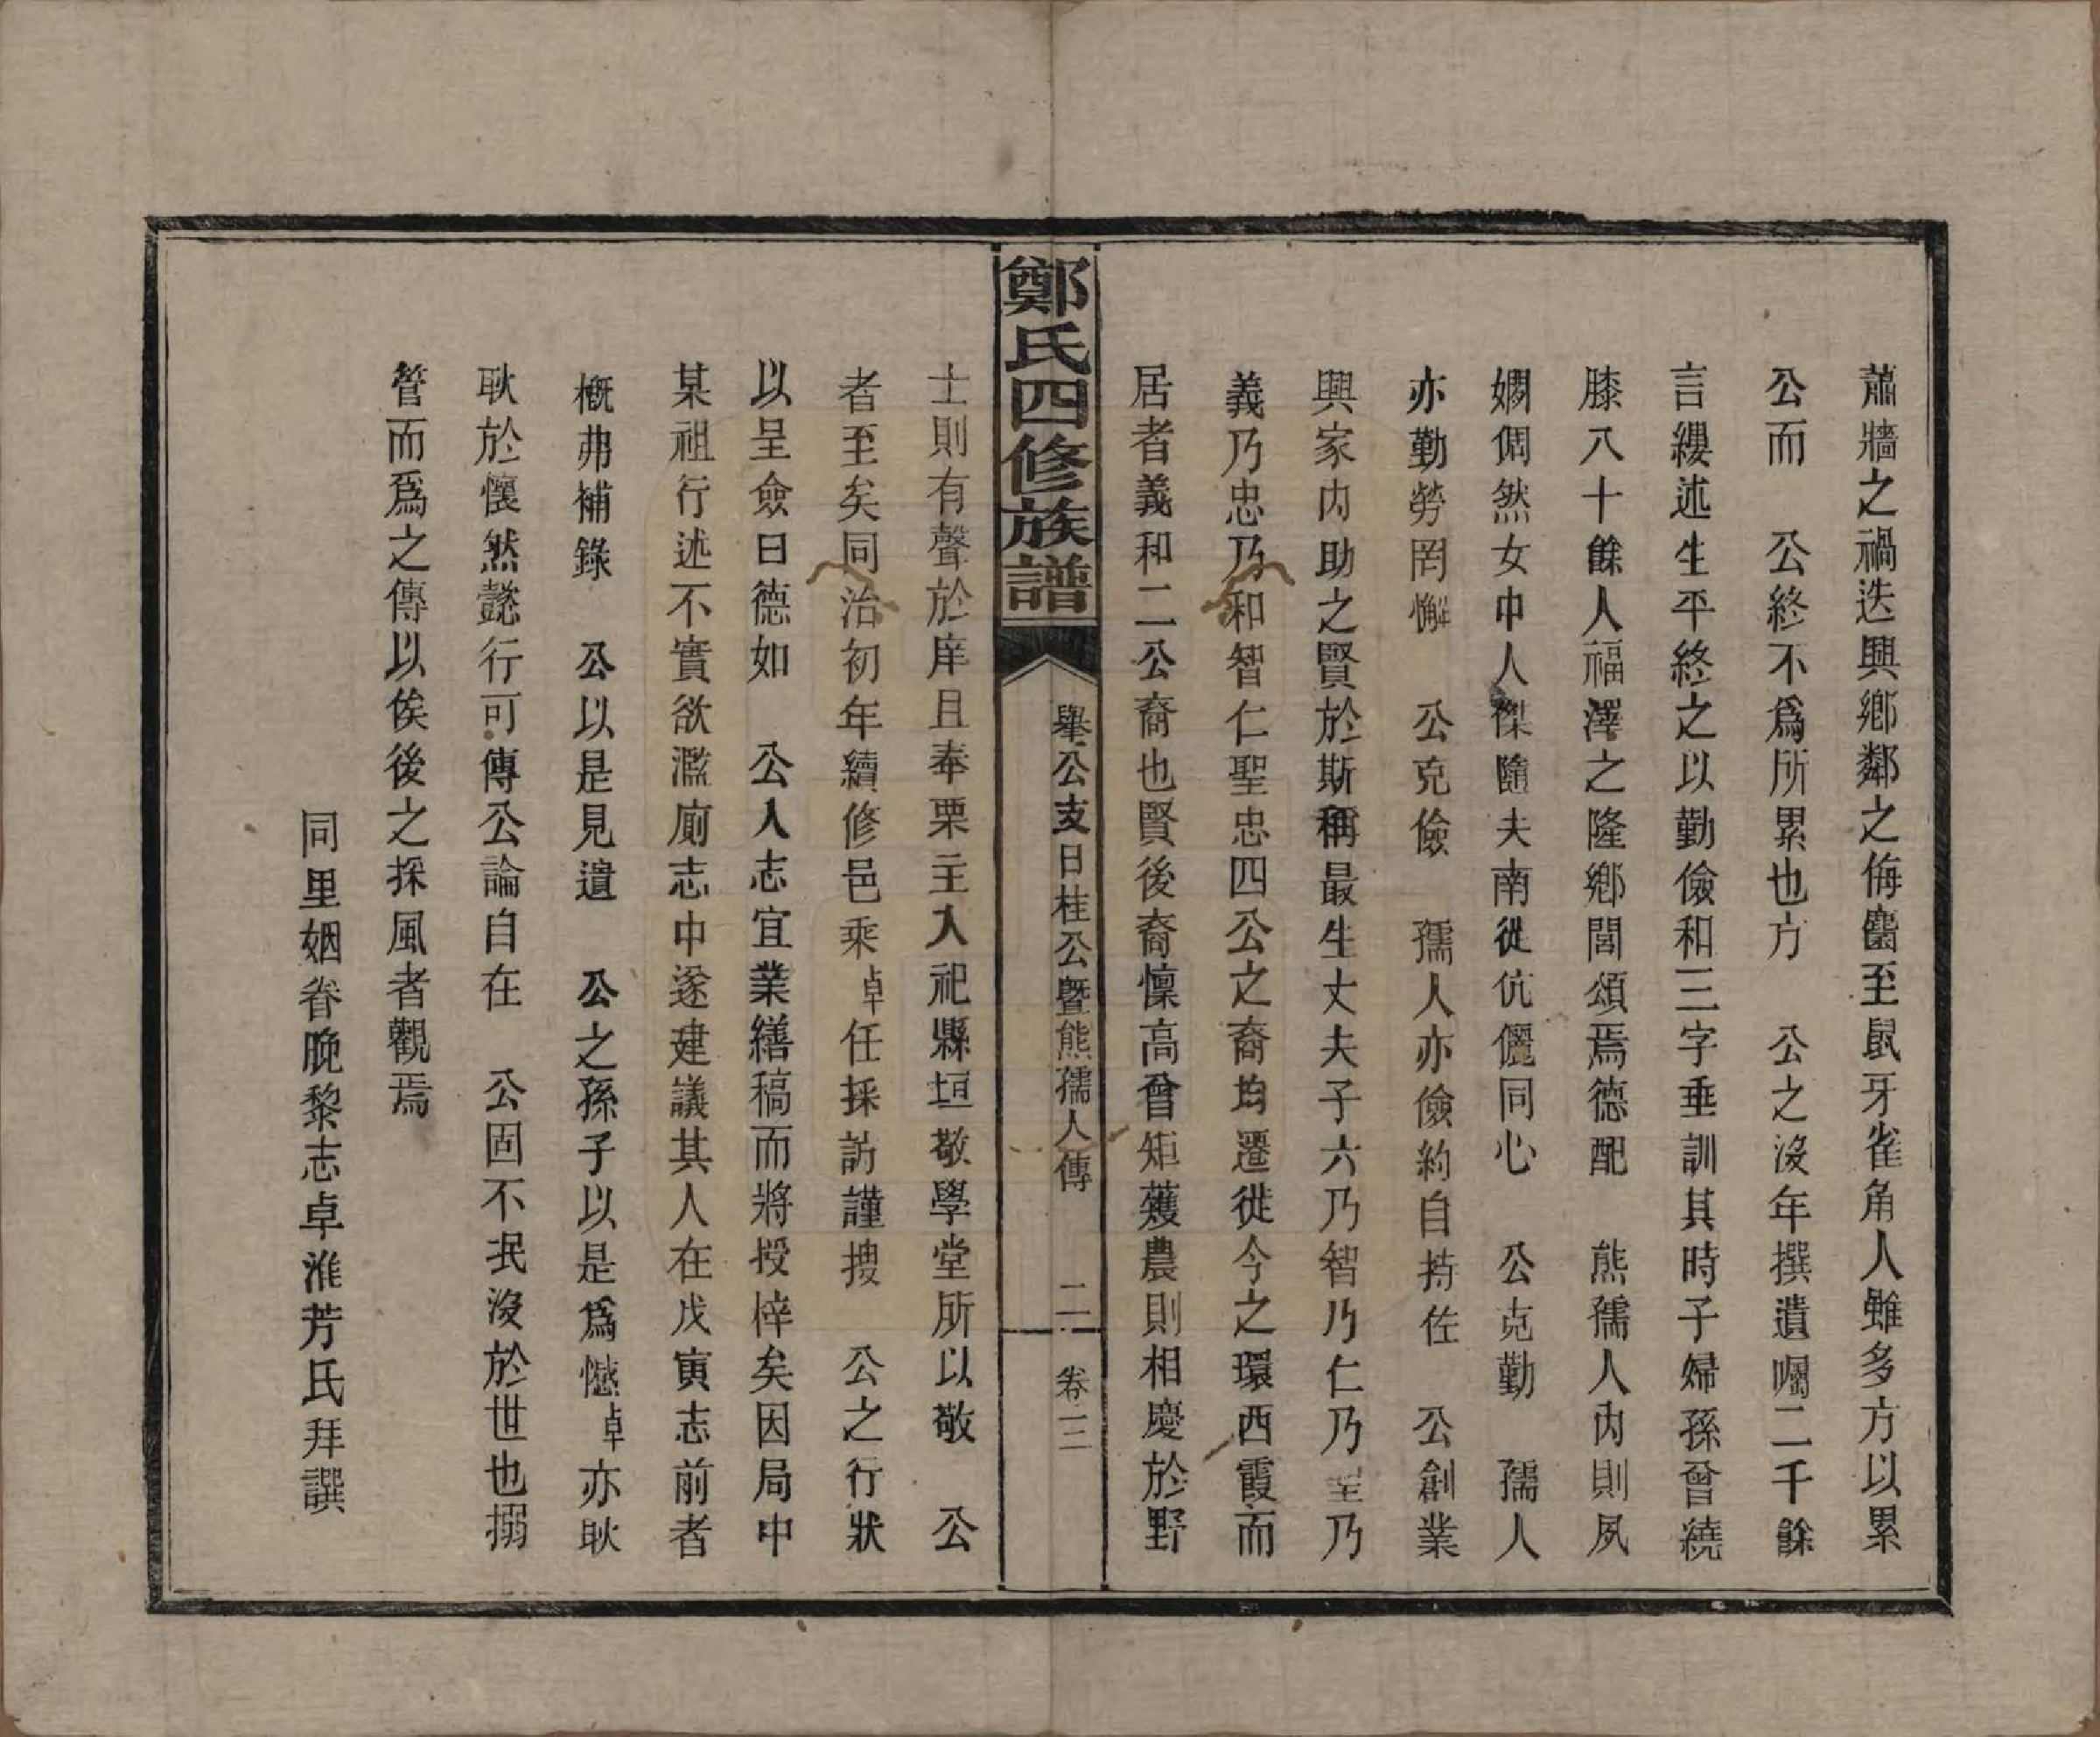 蕭牆之禍迭興鄉鄰之侮麕至鼠牙雀角人雖多方以累
公而　公終不爲所累也方　公之沒年撰遺囑二千餘
言縷述生平終之以勤儉和三字垂訓其時子婦孫曾繞
膝八十餘人福澤之隆鄉閭頌焉德配　熊孺人內則夙
嫻倜然女中人傑隨夫南徙伉儷同心　公克勤　孺人
亦勤勞罔懈　公克儉　孺人亦儉約自持佐　公創業
興家內助之賢於斯稱最生丈夫子六乃智乃仁乃聖乃
義乃忠乃和智仁聖忠四公之裔均遷徙今之環西霞而
居者義和二公裔也賢後裔懍高曾矩矱農則相慶於野
鄭氏四修族譜
舉公支日桂公暨熊孺人傳　二　卷三
士則有聲於庠且奉栗主入祀縣垣敬學堂所以敬　公
者至矣同治初年續修邑乘卓任採訪謹搜　公之行狀
以呈僉曰德如　公入志宜業繕稿而將授梓矣因局中
某祖行述不實欲濫廁志中遂建議其人在戊寅志前者
概弗補錄　公以是見遺　公之孫子以是爲憾卓亦耿
耿於懷然懿行可傳公論自在　公固不泯沒於世也搦
管而爲之傳以俟後之採風者觀焉
同里姻眷晚黎志卓淮芳氏拜譔